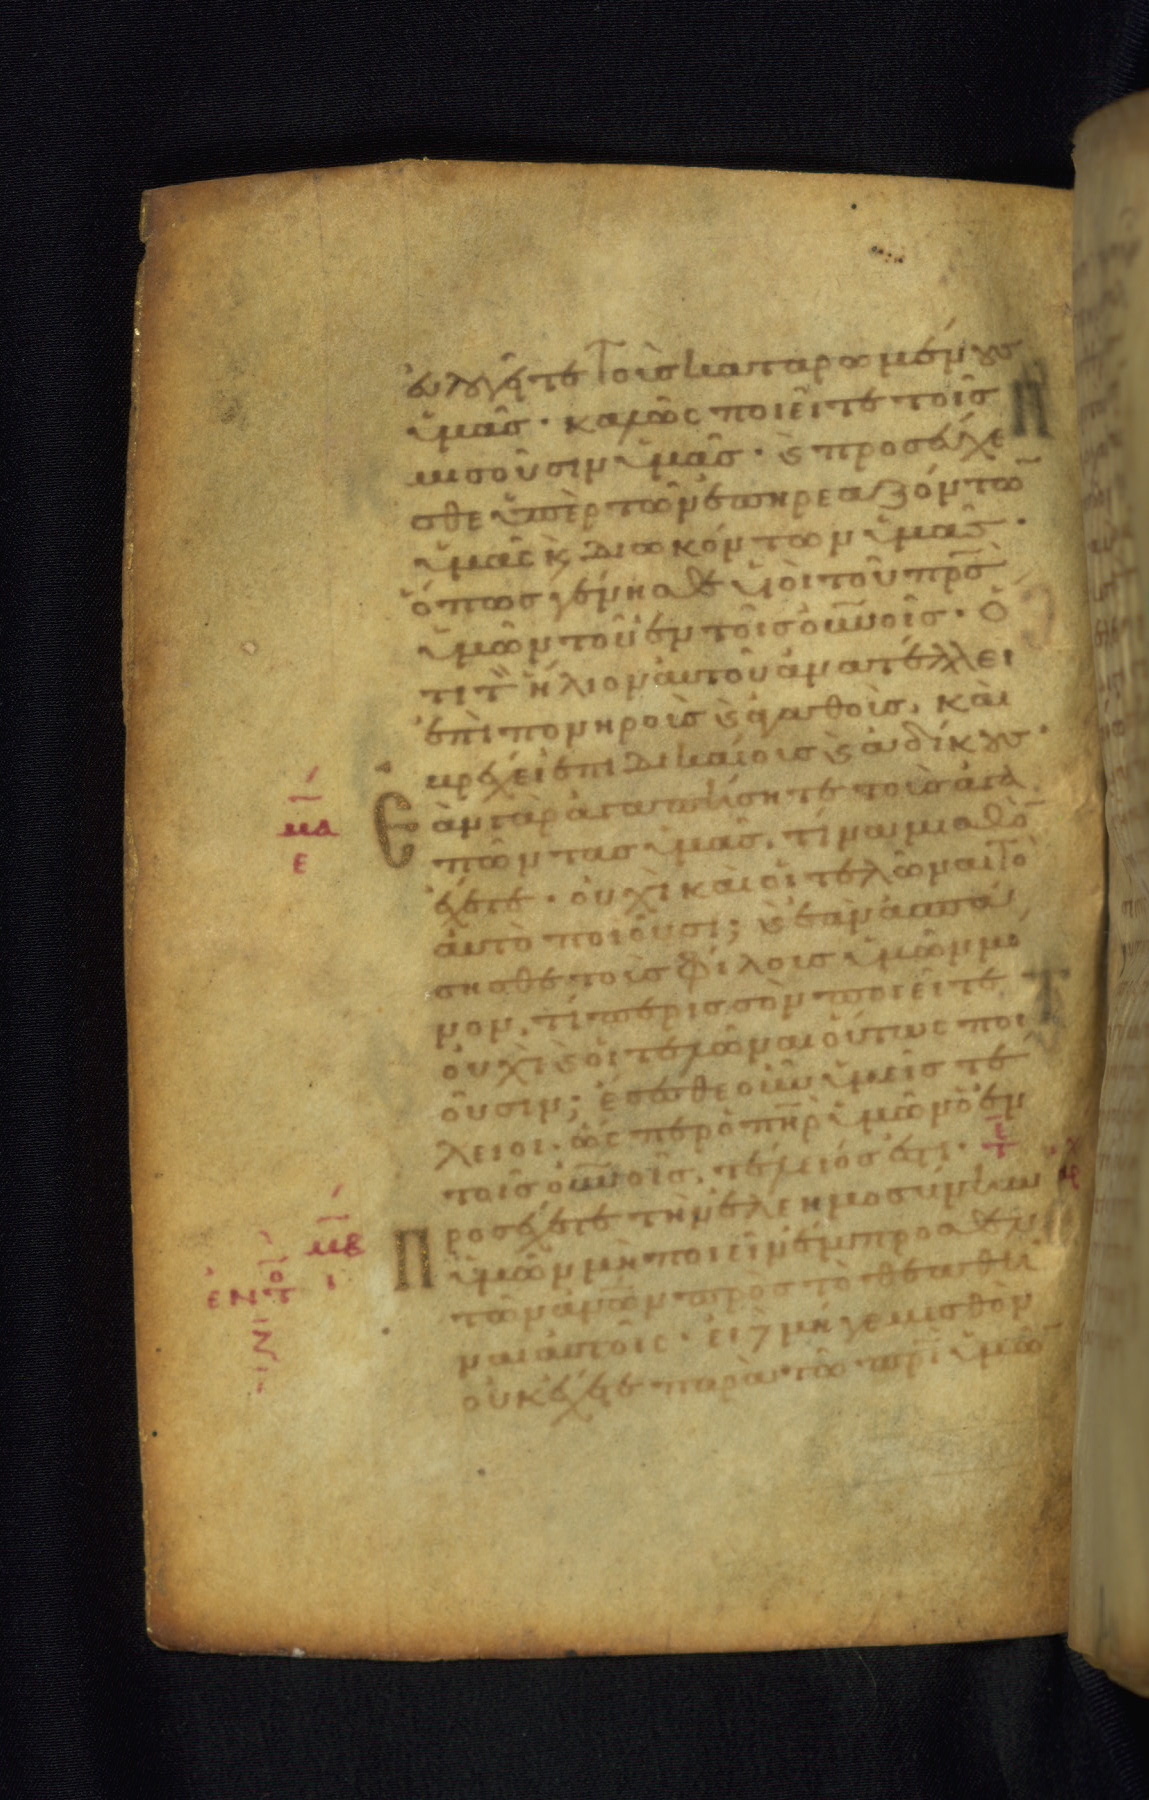 ἐυλογεῖτε τοὺς καταρωμένους
ὑμᾶς · καλῶς ποιεῖτε τοῖς
μισοῦσιν ὑμᾶς · ϗ προσεύχε
σθε ὑπὲρ τῶν ἐπηρεαζόντω̅
ὑμᾶς ϗ διωκόντων ὑμᾶς ·
ὅπως γένησθε υἱοὶ τοῦ πρ̅ς
ὑμῶν τοῦ ἐν τοῖς οὐ̅νοῖς · ὅ
τι τὸν ἥλιον αὐτοῦ ἀνατέλλει
ἐπὶ πονηροὺς ϗ ἀγαθοὺς, καὶ
βρέχει ἐπὶ δικαίους ϗ ἀδίκους ·
Ἐὰν γὰρ ἀγαπήσητε τοὺς ἀγα
πῶντας ὑμᾶς, τίνα μισθὸ̅
ἔχετε · οὐχὶ καὶ οἱ τελῶναι τὸ
ἀυτὸ ποιοῦσι; ϗ ἐὰν ἀσπά
σησθε τοὺς φίλους ὑμῶν μό
νον, τί περισσὸν ποιεῖτε,
οὐχὶ ϗ οἱ τελῶναι οὕτως ποι
οῦσιν; ἔσεσθε οὖν ὑμεῖς τέ
λειοι · ὥσπερ ὁ πη̅ρ ὑμῶν ὁ ἐν
τοῖς οὐ̅νοῖς, τέλειός ἐστι ·
μα
ε
Προσέχετε τὴν ἐλεημοσύνην
ὑμῶν μὴ ποιεῖν ἔμπροσθεν
τῶν ἀν̅ων πρὸς τὸ θεαθῆ
ναι αὐτοῖς · εἰ δὲ μήγε μισθὸν
οὐκ ἔχετε παρὰ τῶ πρ̅ὶ ὑμῶ̅
μβ
ι